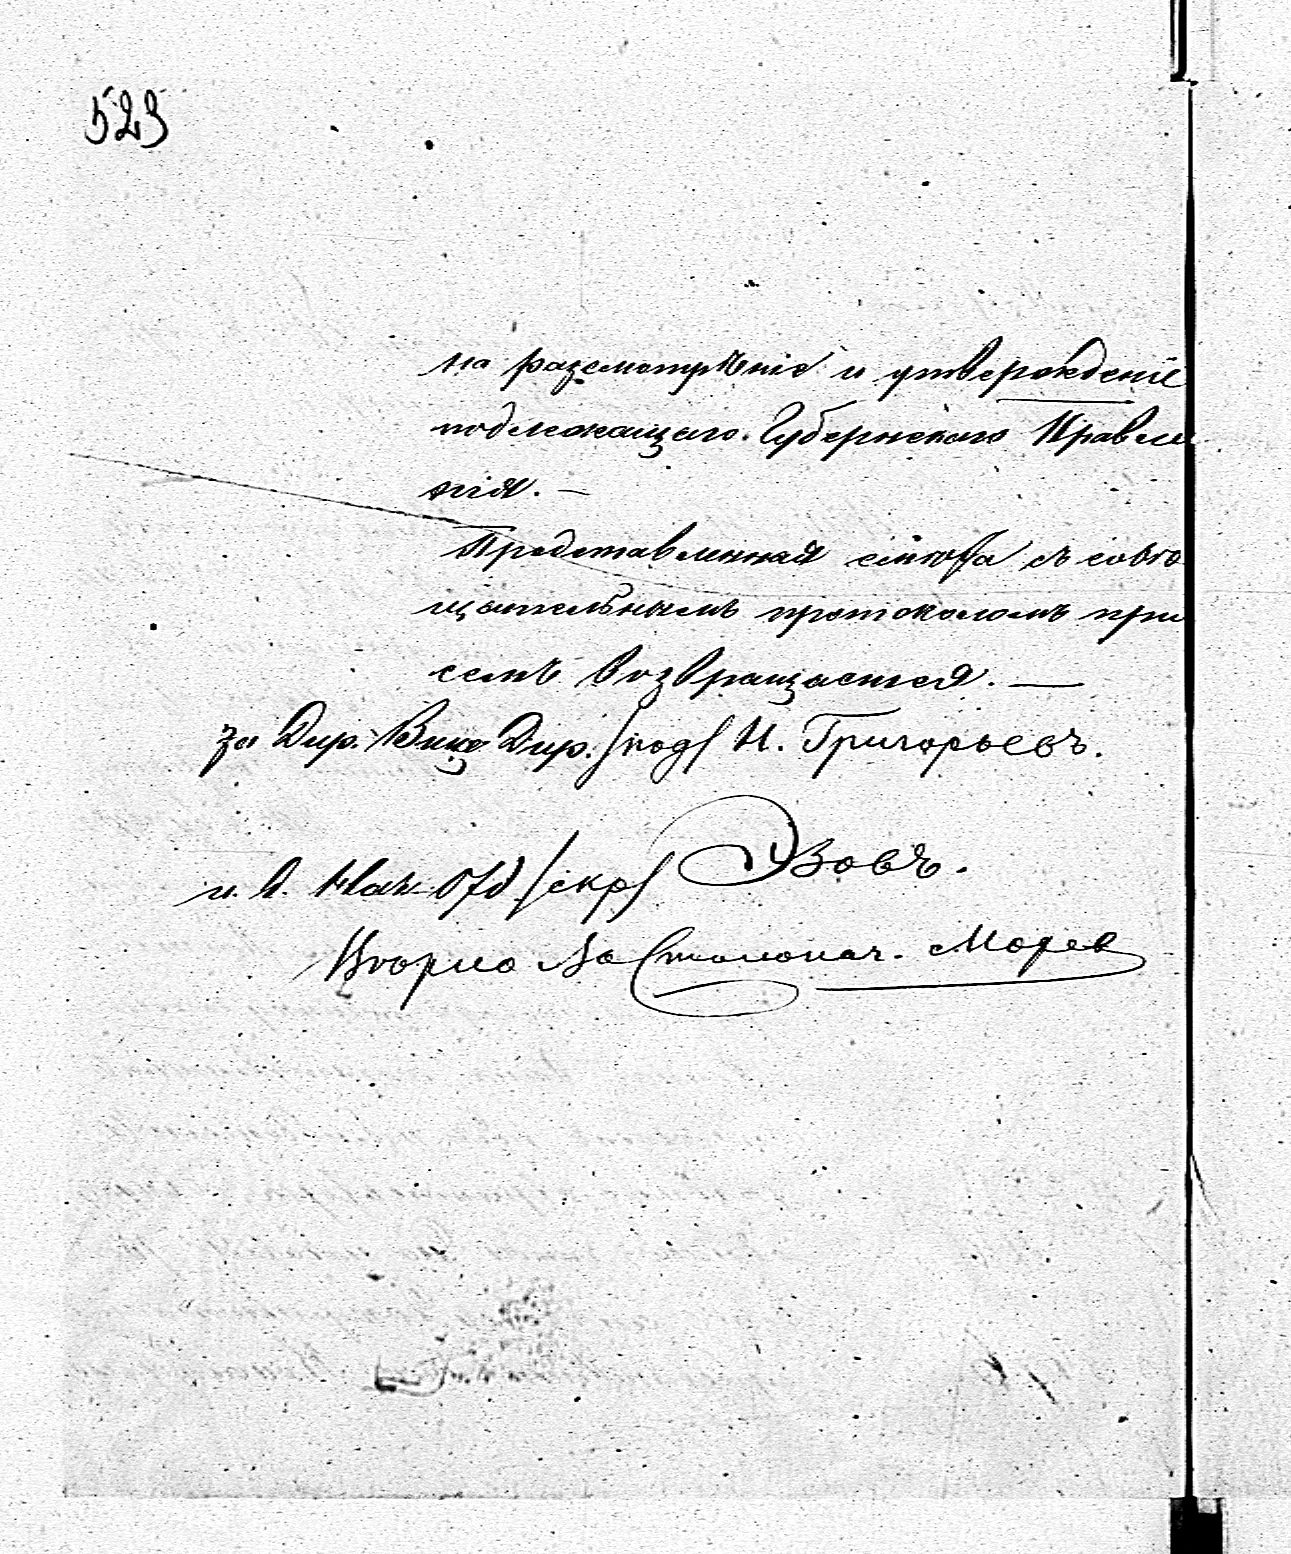 523
на разсмотрѣніе и утвержденіе
подлежащаго Губернскаго Правле
нія. —
Представленная смѣта съ совѣ
щательнымъ протоколомъ при
семъ возвращается. —
за Дир. Вице Дир. /под/ Н. Григорьевъ.
и. д. Нач. Отд /скр/ Эзовъ.
Вѣрно За Столонач. Морев